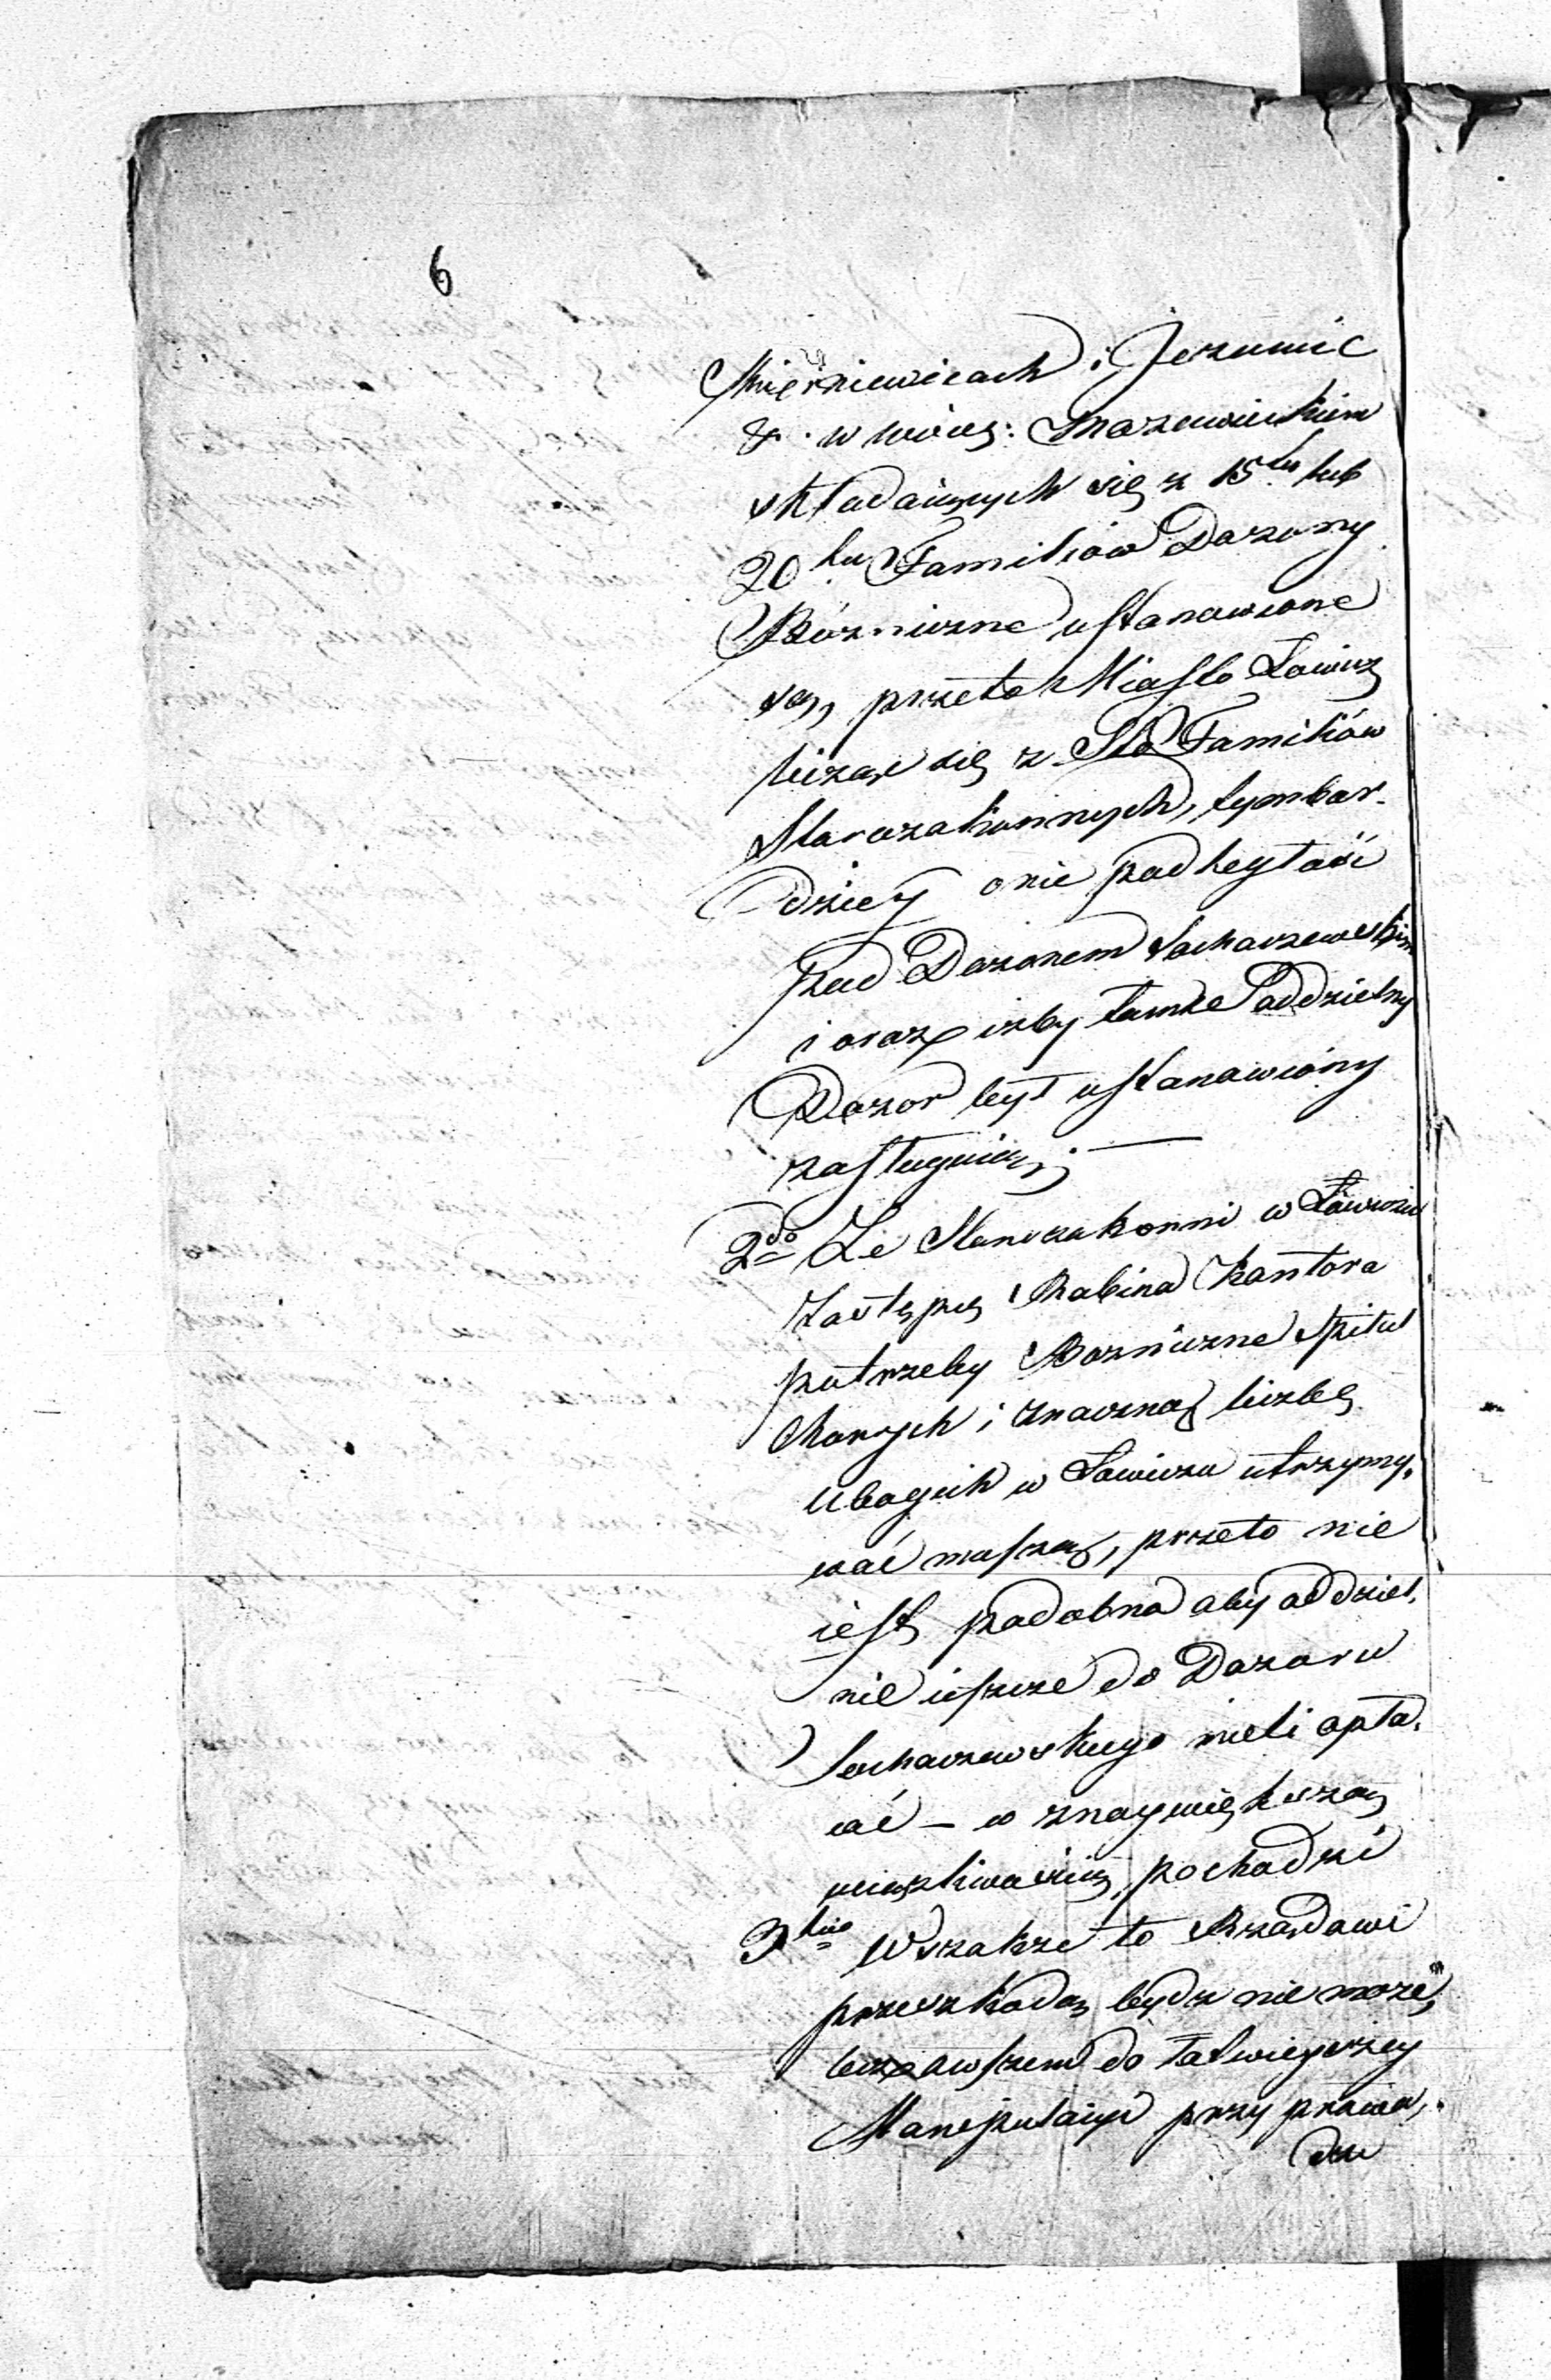 6
Skierniewicach i Jezowie
& w woiew: Mazowieckiem
składaiących się z 15tu lub
20tu Familiów Dozory
Bóżniczne ustanowione
są, przeto Miasto Łowicz
licząc się z Sto Familiów
Starozakonnych, tymbar-
dziey o nie podległość
pod Dozorem Sochaczewskim
i oraz izby tamże oddzielny
Dozor był ustanowiony
zasługuią;
2do Że Starozakonni w Łowiczu
Zastępcę Rabina Kantora
potrzeby Bożniczne Szpital
Chorych i znaczną liczbę
Ubogich w Łowiczu utrzymy-
wać muszą, przeto nie
iest podobna aby oddziel-
nie ieszcze do Dozoru
Sochaczewskiego mieli opła-
cać – w znaywiększą
uciążliwością pochodzi
3tio Wszakże to Rządowi
przeszkodą bydz nie może,
lecz owszem do łatwieyszey
Manipulacyi przy prowa-
dze